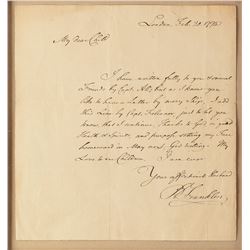 London, Feb. 20. 1775
My dear Child
I have written fully to you & several
Friends by Capt. All; but as I know you
like to have a Letter by every Ship, I add
this Line by Capt. Falconer just to let you
know, that I continue, Thanks to God in good
Health & Spirits, and purpose setting my Face
homeward in May next God willing. My
Love to our Children. I am ever
Your affectionate Husband
B Franklin